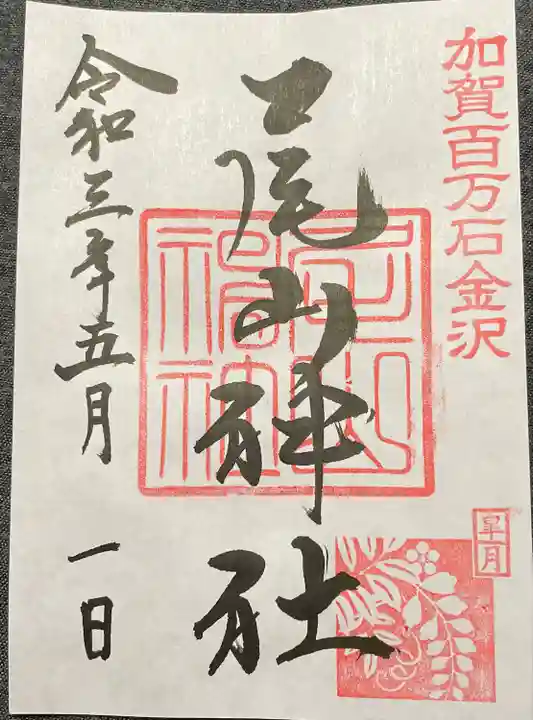 加賀百万石金沢
皐月
尾山神社
令和三年五月一日